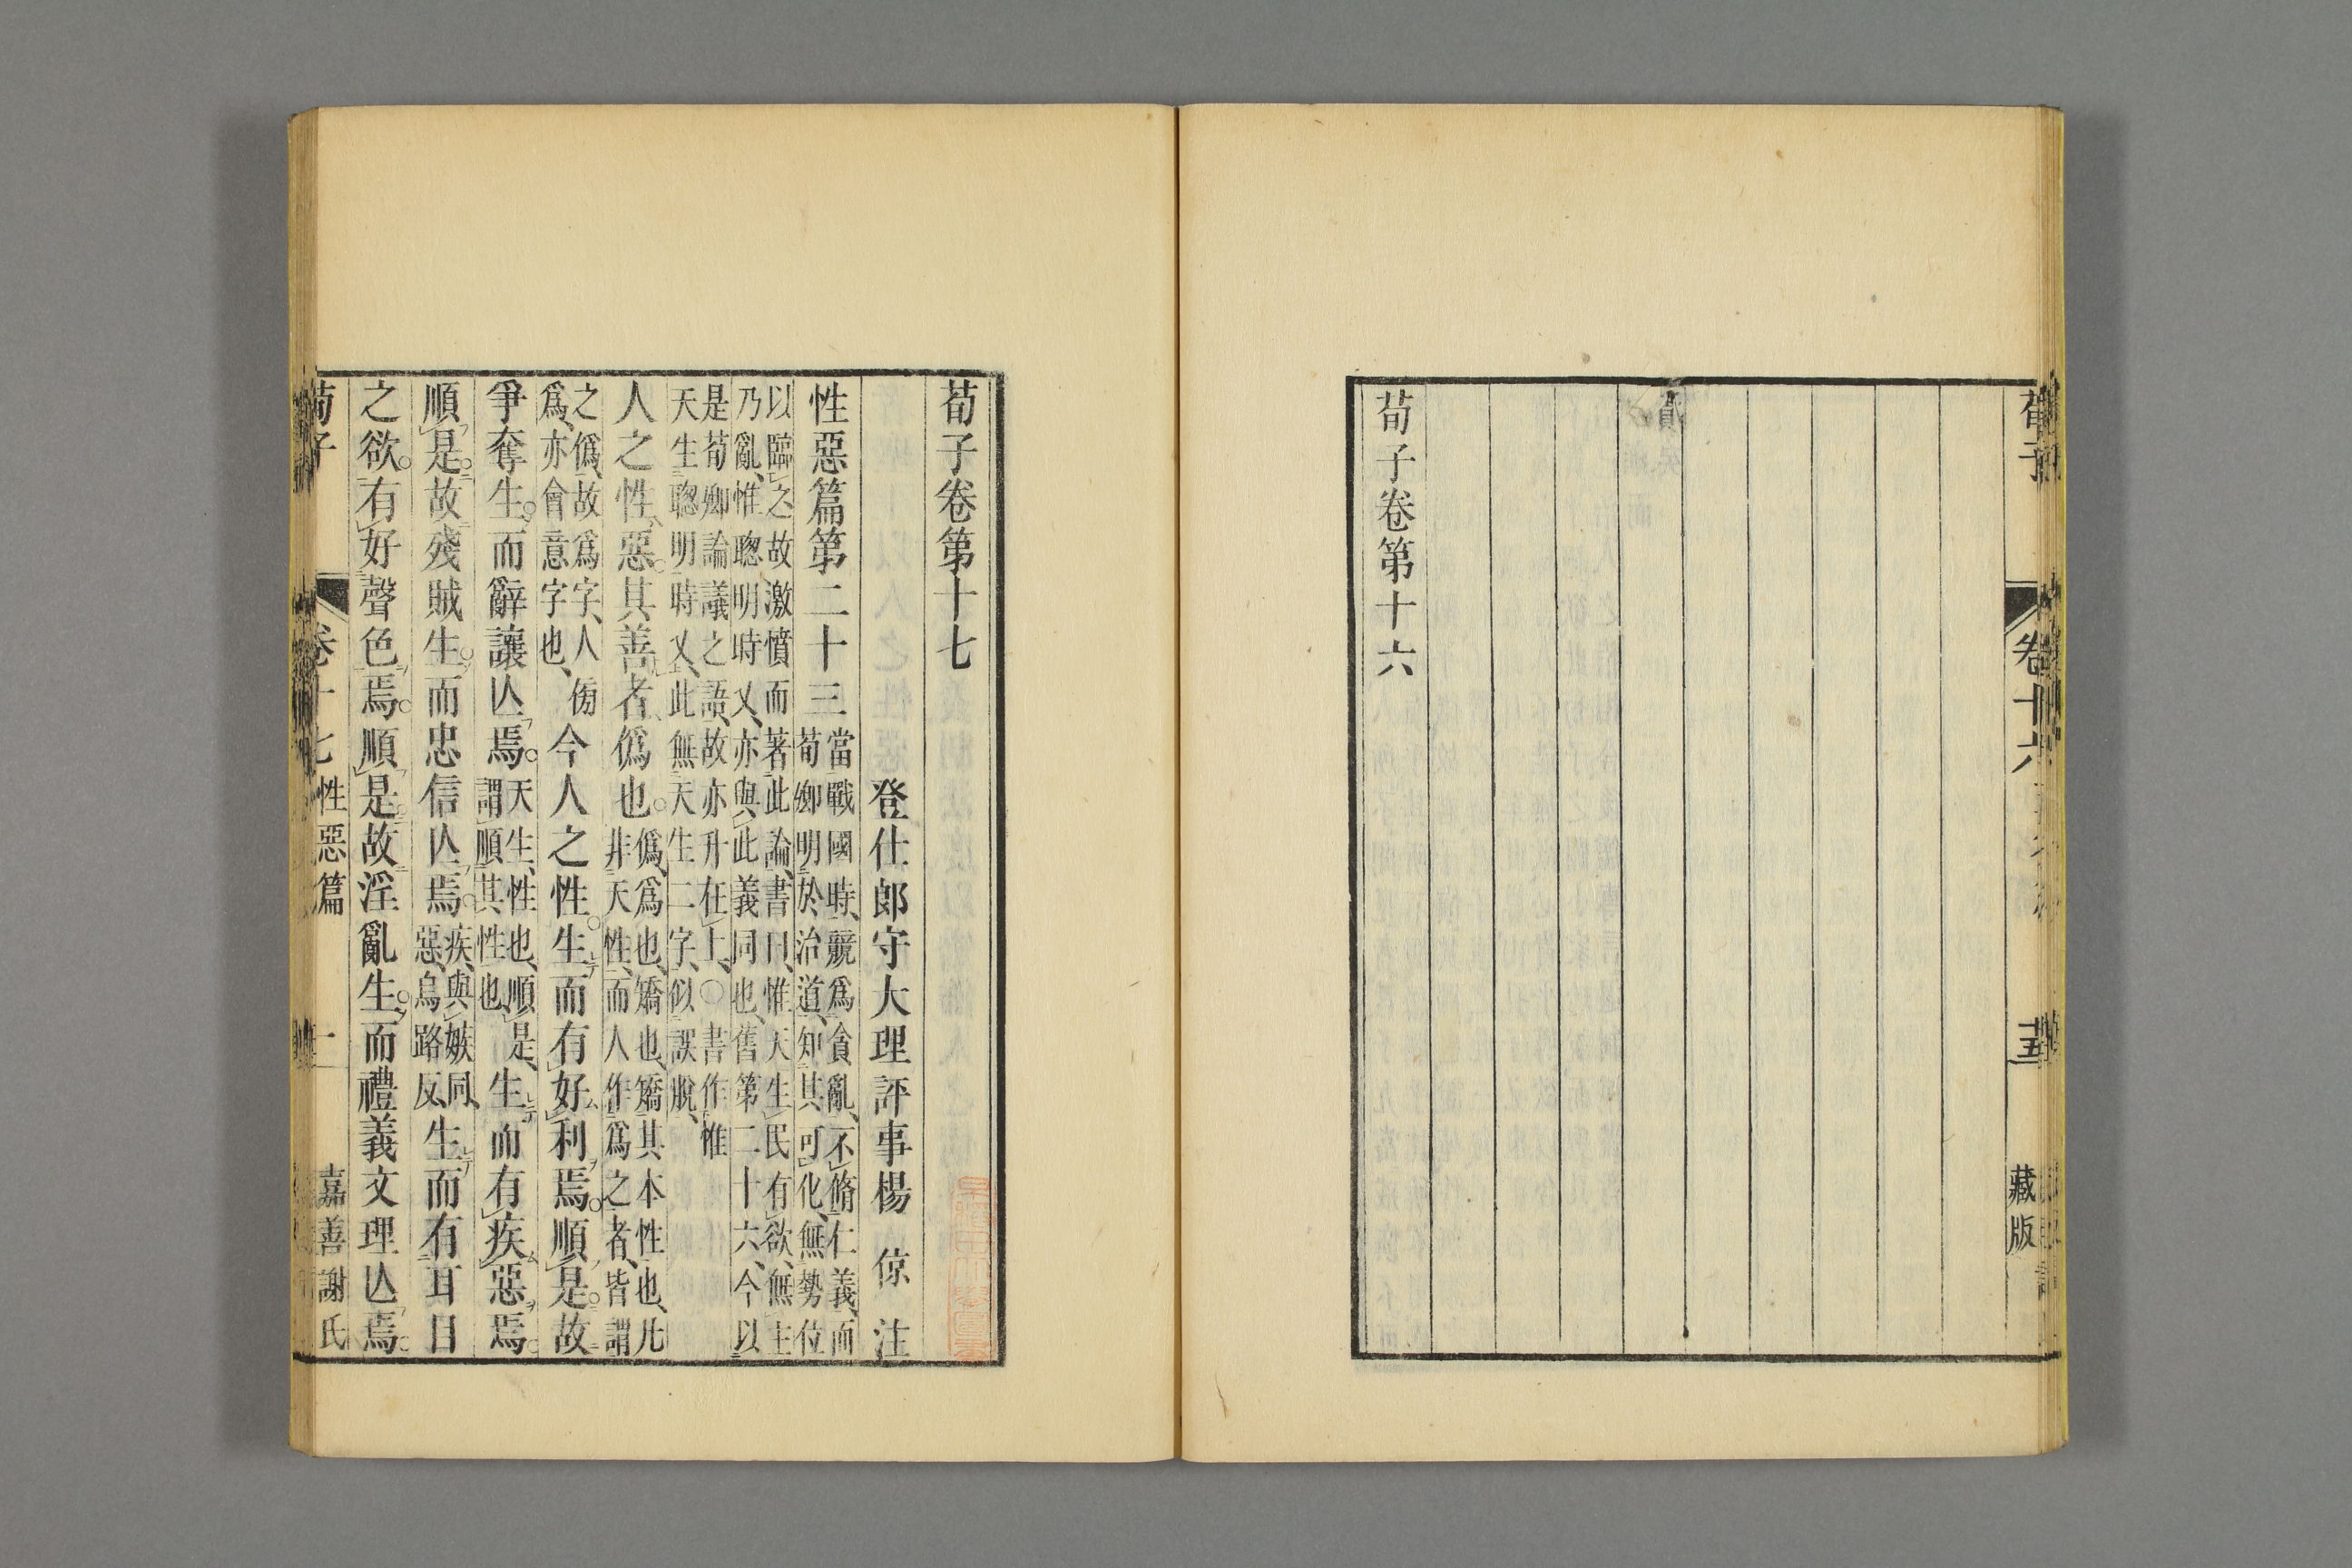 荀子
卷十六
藏版
荀子卷第十六
荀子卷第十七
登仕郎守大理評事楊 倞 注
性惡篇第二十三
當戰國時、競爲貪亂、不脩仁義、而
荀卿明於治道、知其可化、無勢位
以臨之、故激憤而著此論、書曰、惟天生民有欲、無主
乃亂、惟聰明時乂、亦與此義同也、舊第二十六、今以
是荀卿論議之語、故亦升在上、○書作惟
天生聰明時乂、此無天生二字、似誤脫、
人之性惡其善者僞也
僞、爲也、矯也、矯其本性也、凡
非天性、而人作爲之者、皆謂
之僞、故爲字、人傍
爲、亦會意字也、
今人之性生而有好利焉順是故
爭奪生而辭讓亾焉
天生、性也、順是、
謂順其性也、
生而有疾惡焉
順是故殘賊生而忠信亾焉
疾、與嫉同、
惡、烏路反、
生而有耳目
之欲有好聲色焉順是故淫亂生而禮義文理亾焉
荀子
卷十七
性惡篇
一
嘉善謝氏